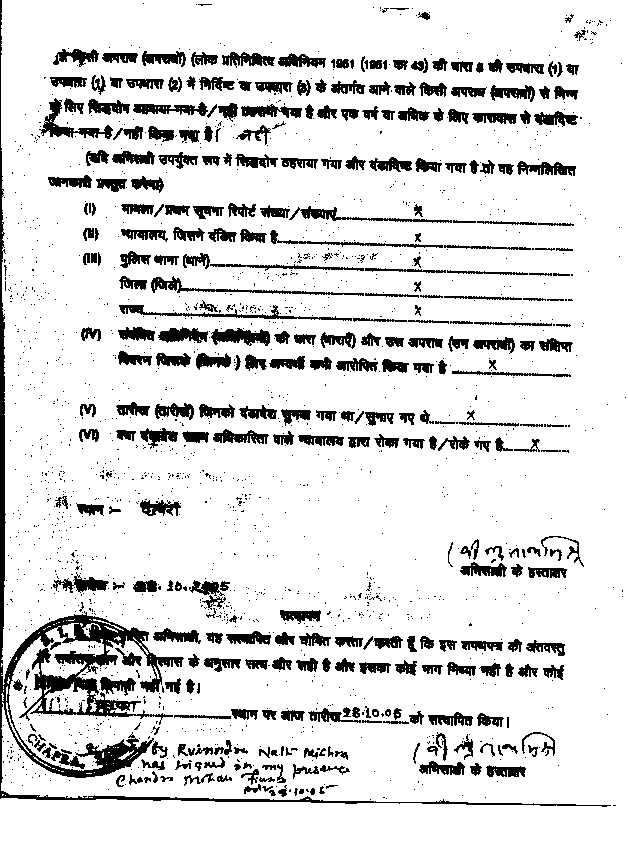 किसी अपराध (अपराधों) (लोक प्रतिनिधित्व अधिनियम 1951 (1951 का 43) की धारा 8 की उपधारा (1) या
उपधारा (1) या उपधारा (2) में निर्दिष्ट या उपधारा (3) के अंतर्गत आने वाले किसी अपराध (अपराधों) से भिन्न
के लिए सिद्धदोष ठहराया गया है/नहीं ठहराया गया है और एक वर्ष या अधिक के लिए कारावास से दंडादिष्ट
किया गया है/नहीं किया गया है। नहीं
(यदि अभिसाक्षी उपर्युक्त रूप में सिद्धदोष ठहराया गया और दंडादिष्ट किया गया है तो वह निम्नलिखित
जानकारी प्रस्तुत करेगा)
(I) मामला/प्रथम सूचना रिपोर्ट संख्या/संख्याएं x
(II) न्यायालय, जिसने दंडित किया है x
(III) पुलिस थाना (थानें) x
जिला (जिलें) x
राज्य x
(IV) संबंधित अधिनियम (अधिनियमों) की धारा (धाराएँ) और उस अपराध (उन अपराधों) का संक्षिप्त
विवरण जिसके (जिनके) लिए अभ्यर्थी आरोपित किया गया है x
(V) तारीख (तारीखें) जिनको दंडादेश सुनाया गया था/सुनाए गए थे x
(VI) क्या दंडादेश सक्षम अधिकारिता वाले न्यायालय द्वारा रोका गया है/रोके गए है x
स्थान :-
अभिसाक्षी के हस्ताक्षर
तारीख :- 28.10.2005
सत्यापन
अभिसाक्षी, यह सत्यापित और घोषित करता/करती हूँ कि इस शपथपत्र की अंतवस्तु
और विश्वास के अनुसार सत्य और सही है और इसका कोई भाग मिथ्या नहीं है और कोई
छिपायी नहीं गई है।
स्थान पर आज तारीख 28.10.05 को सत्यापित किया।
CHAPRA
by Ravindra Nath Mishra
has signed in my presence
Chandra Mohan
28.10.05
अभिसाक्षी के हस्ताक्षर